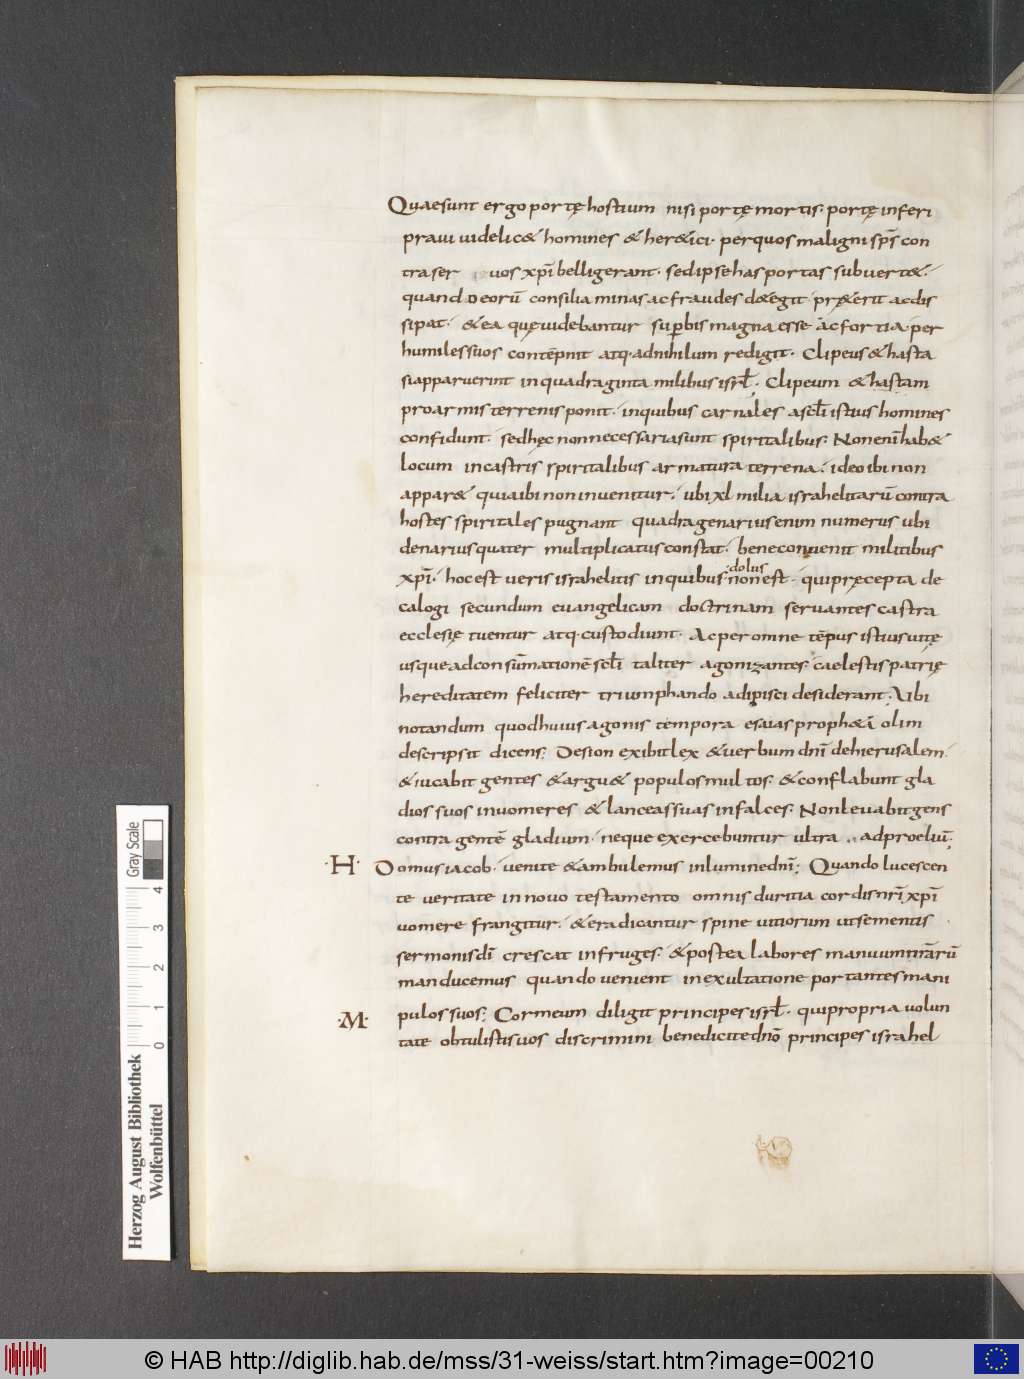 Quaesunt ergo portę hostium nisi portę mortis· portę inferi
praui uidelic& homines & her&ici· perquos maligni sp̄s con
traser uos xp̄i belligerant· sed ipse has portas subuert&·
quando eorū consilia minas ac fraudes d&egit pr&erit ac dis
sipat· & ea quę uidebantur sup̄bis magna esse ac fortia· per
humiles suos contēpnit atq· adnihilum redigit· Clipeus & hasta
si apparuerint in quadraginta milibus isrł· Clipeum & hastam
pro armis terrenis ponit· in quibus carnales ascłi istius homines
confidunt· sed hęc non necessaria sunt spiritalibus· Non enī hab&
locum in castris spiritalibus armatura terrena· ideo ibi non
appar& quia ibi non inuenitur· ubi xl milia israhelitarū contra
hostes spiritales pugnant quadragenarius enim numerus ubi
denarius quater multiplicatus constat· bene conuenit militibus
xp̄i· hoc est ueris israhelitis in quibus dolus non est· qui pręcepta de
calogi secundum euangelicam doctrinam seruantes castra
ecclesię tuentur atq· custodiunt· Ac per omne tēpus istius uitę
usque ad consūmationē scłi taliter agonizantes· caelestis patrię
hereditatem feliciter triumphando adipisci desiderant· Ubi
notandum quod huius agonis tempora esaias proph&ā olim
descripsit dicens; De sion exibit lex & uerbum dn̄i de hierusalem·
& iucabit gentes & argu& populos multos· & conflabunt gla
dios suos in uomeres & lanceas suas in falces· Non leuabit gens
contra gentē gladium· neque exercebuntur ultra ad proeliū;
·H· Domus iacob· uenite & ambulemus in lumine dn̄i; Quando lucescen
te ueritate in nouo testamento omnis duritia cordis nr̄i xp̄i
uomere frangitur· & eradicantur spine uitiorum ut sementis
sermonis dī crescat in frugis· & postea labores manuum nr̄arū
manducemus quando uenient in exultatione portantes mani
pulos suos;
·M· Cor meum diligit principes isrł· qui propria uolun
tate obtulistis uos discrimini benedicite dn̄o principes israhel
Herzog August Bibliothek
Wolfenbüttel
0 1 2 3 4
Gray Scale
© HAB http://diglib.hab.de/mss/31-weiss/start.htm?image=00210